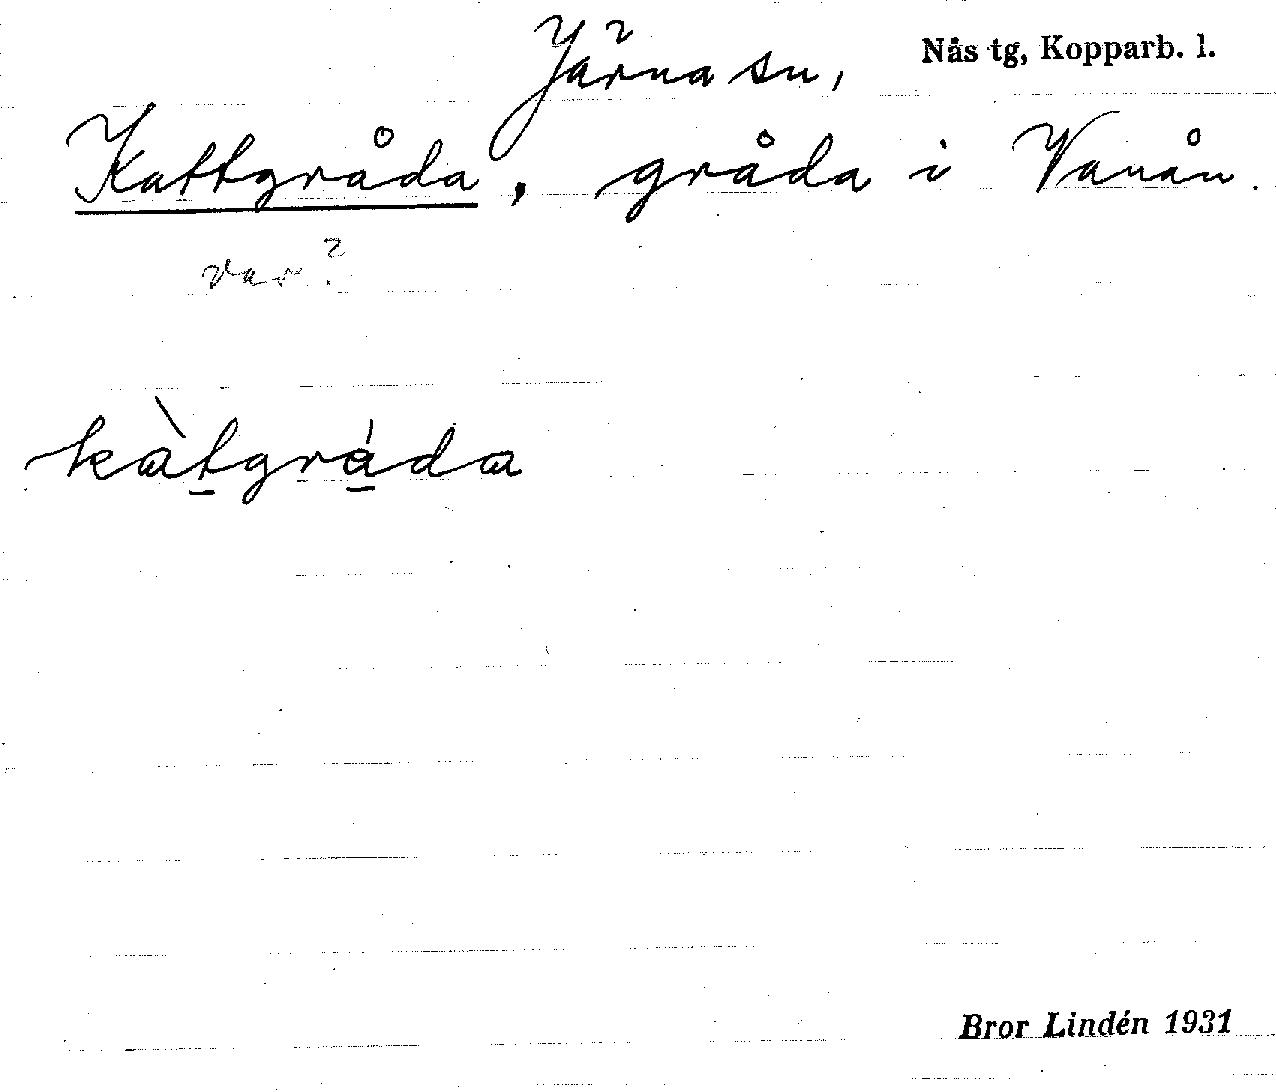 Järna sn, Nås tg, Kopparb. l.
Kattgråda, gråda i Vanån.
var?
kàt̠grá̠da
Bror Lindén 1931